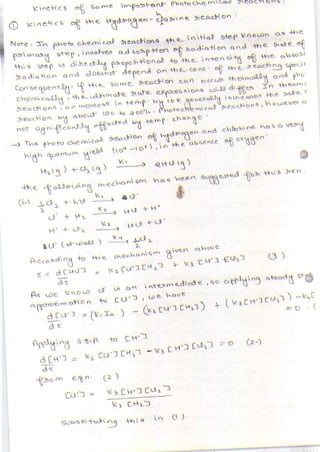 Kinetics of Some Important Photochemical Reactions:
① Kinetics of the Hydrogen - Chlorine Reaction:
Note: In photo chemical reactions the initial step known as the
primary step, involves adsorption of radiation and the rate of
this step is directly proportional to the intensity of the absorbed
radiation and doesnot depend on the conc. of the reacting speci
Consequently, if the same reaction can occur thermally and pho
chemically, the ultimate rate expressions will differ. In thermal
reactions, an increase in temp by 10 K generally increases the rate
reaction by about 100 to 200%. Photochemical reactions, however a
not significantly affected by temp change.
→ The photo chemical reaction of hydrogen and chlorine has a very
high quantum yield (10⁴ - 10⁶), in the absence of oxygen.
H₂(g) + Cl₂(g) K₁→ 2HCl(g)
the following mechanism has been suggested for this rxn.
(i) ½Cl₂ + hν K₁→ Cl·
Cl· + H₂ K₂→ HCl + H·
H· + Cl₂ K₃→ HCl + Cl·
Cl· (at wall) K₄→ ½Cl₂
According to the mechanism given above
r = d[HCl]/dt = K₂[Cl·][H₂] + K₃[H·][Cl₂] (3)
As we know Cl· is an intermediate, so applying steady st
approximation to [Cl·], we have
d[Cl·]/dt = (K₁Ia) - (K₂[Cl·][H₂]) + (K₃[H·][Cl₂]) - K₄[
= 0 - (
Applying S.S.A to [H·]
d[H·]/dt = K₂[Cl·][H₂] - K₃[H·][Cl₂] = 0 (2)
from eqn (2)
[Cl·] = K₃[H·][Cl₂] / K₂[H₂]
Substituting this in (1)